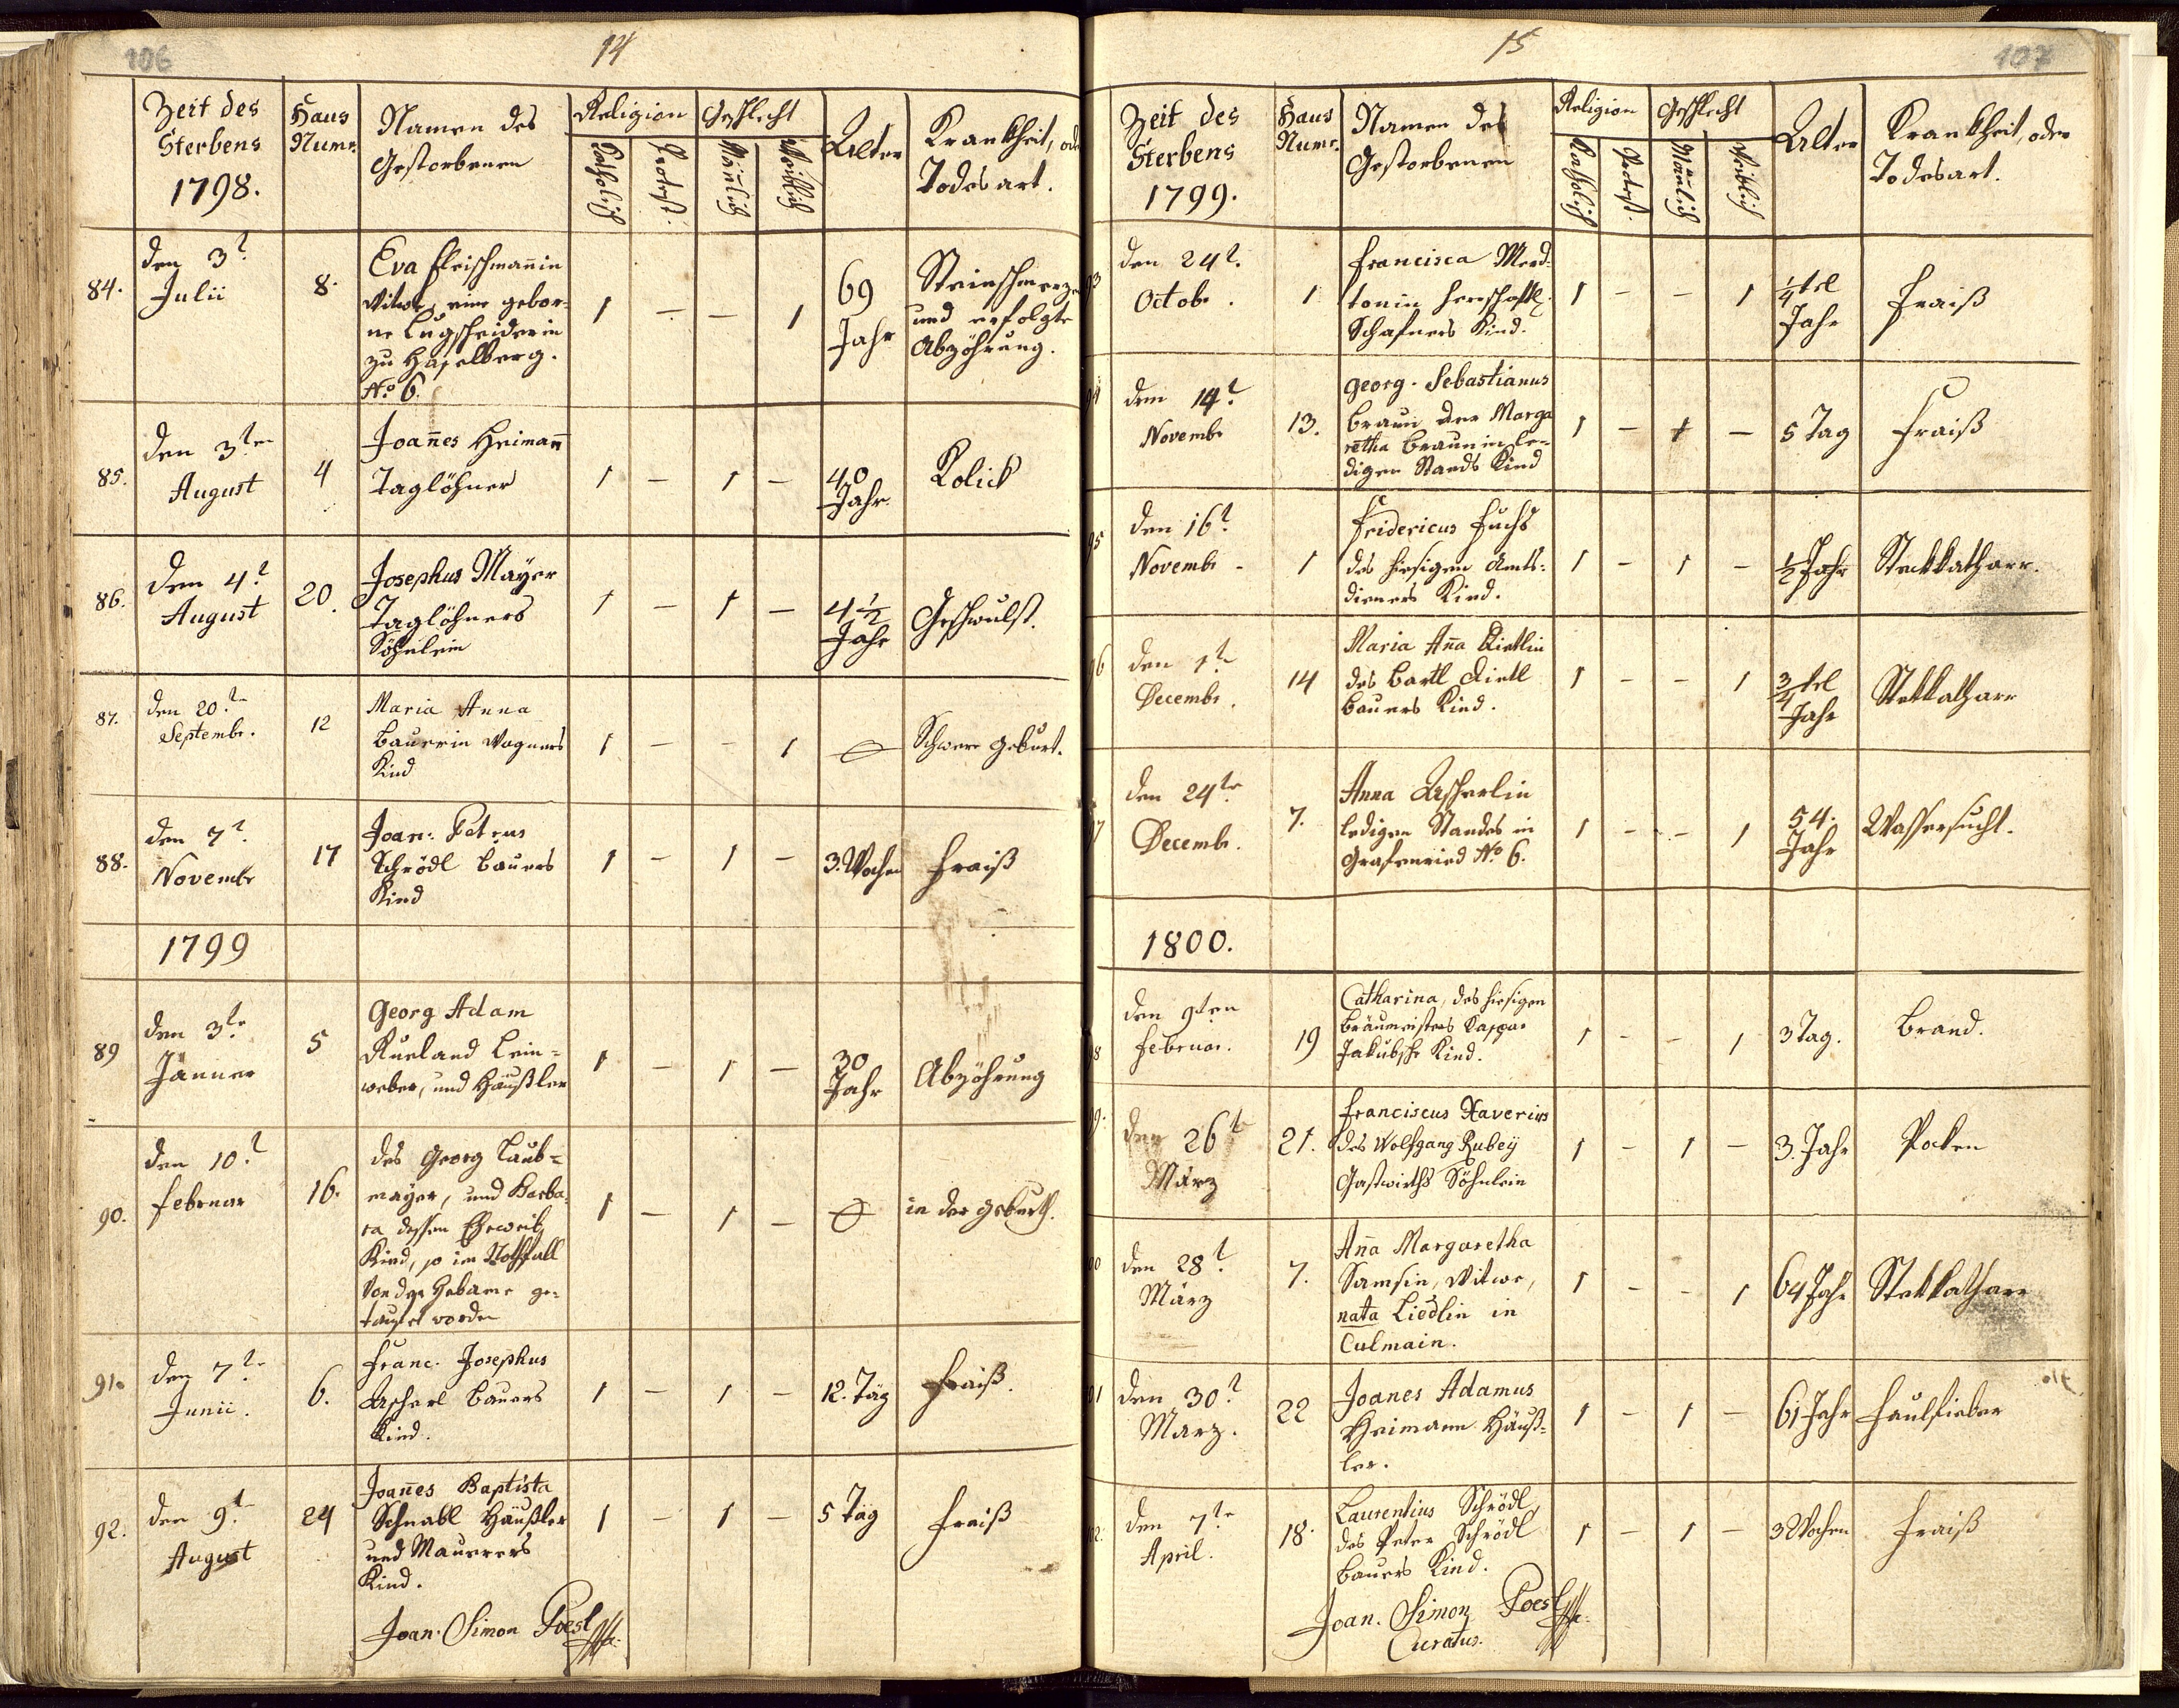 106
14
Zeit des
Sterbens
1798.
Haus
Numr.
Namen des
Gestorbenen
Religion
Katholisch
Protest:
Geschlecht
Mänlich
Weiblich
Alter
Krankheit, oder
Todesart.
84.
den 3t
Julii
8.
Eva Fleischmanin
Witwe, eine gebor-
ne Lugscheiderin
zu Haselberg.
No 6.
1 — — 1
69
Jahr
Steinschmerzen
und erfolgte
Abzöhrung.
85.
den 3ten
August
4
Joanes Heimann
Taglöhner
1 — 1 —
40
Jahr.
Kolick
86.
den 4t
August
20.
Josephus Mayer
Taglöhners
Söhnlein
1 — 1 —
4 1/2
Jahr
Geschwulst.
87.
den 20te
Septembr.
12
Maria Anna
Bauerin Wagners
Kind
1 — — 1
0
Schwere Geburt.
88.
den 7t
Novembr
17
Joan: Petrus
Schrödl Bauers
Kind
1 — 1 —
3. Wochen
Fraiß
1799
89
den 3te
Jänner
5
Georg Adam
Rueland Lein-
weber, und Häußler
1 — 1 —
30
Jahr
Abzöhrung
90.
den 10t
Februar
16.
des Georg Laub-
mayer, und Barba-
ra dessen Eheweib
Kind, so im Nothfall
von der Hebame ge-
taufet worden
1 — 1 —
0
in der Geburth.
91.
den 7te
Junii.
6.
Franc. Josephus
Ascherl Bauers
Kind.
1 — 1 —
12. Täg
Fraiß.
92.
den 9te
August
24
Joanes Baptista
Schnabl Häußler
und Mauerers
Kind.
1 — 1 —
5 Täg
Fraiß
Joan. Simon Poesl
15
107
Zeit des
Sterbens
1799.
Haus
Numr.
Namen des
Gestorbenen
Religion
Katholisch
Protest.
Geschlecht
Mänlich
Weiblich
Alter
Krankheit, oder
Todesart.
93
den 24t.
Octobr.
1
Francisca Merd-
tonin herrschaftl.
Schafners Kind.
1 — — 1
1/4 tel
Jahr
Fraiß
94
den 14t
Novembr
13.
Georg. Sebastianus
Braun der Marga
retha Braunin le-
digen Stands Kind
1 — 1 —
5 Tag
Fraiß
95
den 16t
Novembr
1
Fridericus Fuchs
des hiesigen Amts-
dieners Kind.
1 — 1 —
1/2 Jahr
Steckkatharr.
96
den 1te
Decembr.
14
Maria Ana Dietlin
des Bartl Dietl
Bauers Kind.
1 — — 1
3/4 tel
Jahr
Stekkatharr
97
den 24te
Decembr.
7.
Anna Ascherlin
ledigen Standes in
Grafenried No 6.
1 — — 1
54.
Jahr
Wassersucht.
1800.
98
den 9ten
Februar.
19
Catharina, des hiesigen
Bräumeisters Caspar
Jakubsche Kind.
1 — — 1
3 Tag.
Brand.
99.
den 26t
März
21.
Franciscus Xaverius
des Wolfgang Rubey
Gastwirths Söhnlein
1 — 1 —
3. Jahr
Pocken
00
den 28t
März
7.
Ana Margaretha
Samsin, Witwe,
nata Liedlin in
Culmain.
1 — — 1
64 Jahr
Stekkatharr
01
den 30t
März.
22
Joanes Adamus
Heimann Häuß-
ler.
1 — 1 —
61 Jahr
Faulfieber
02.
den 7te
April.
18.
Laurentius Schrödl,
des Peter Schrödl
Bauers Kind.
1 — 1 —
3 Wochen
Fraiß
Joan. Simon Poesl
Curatus.